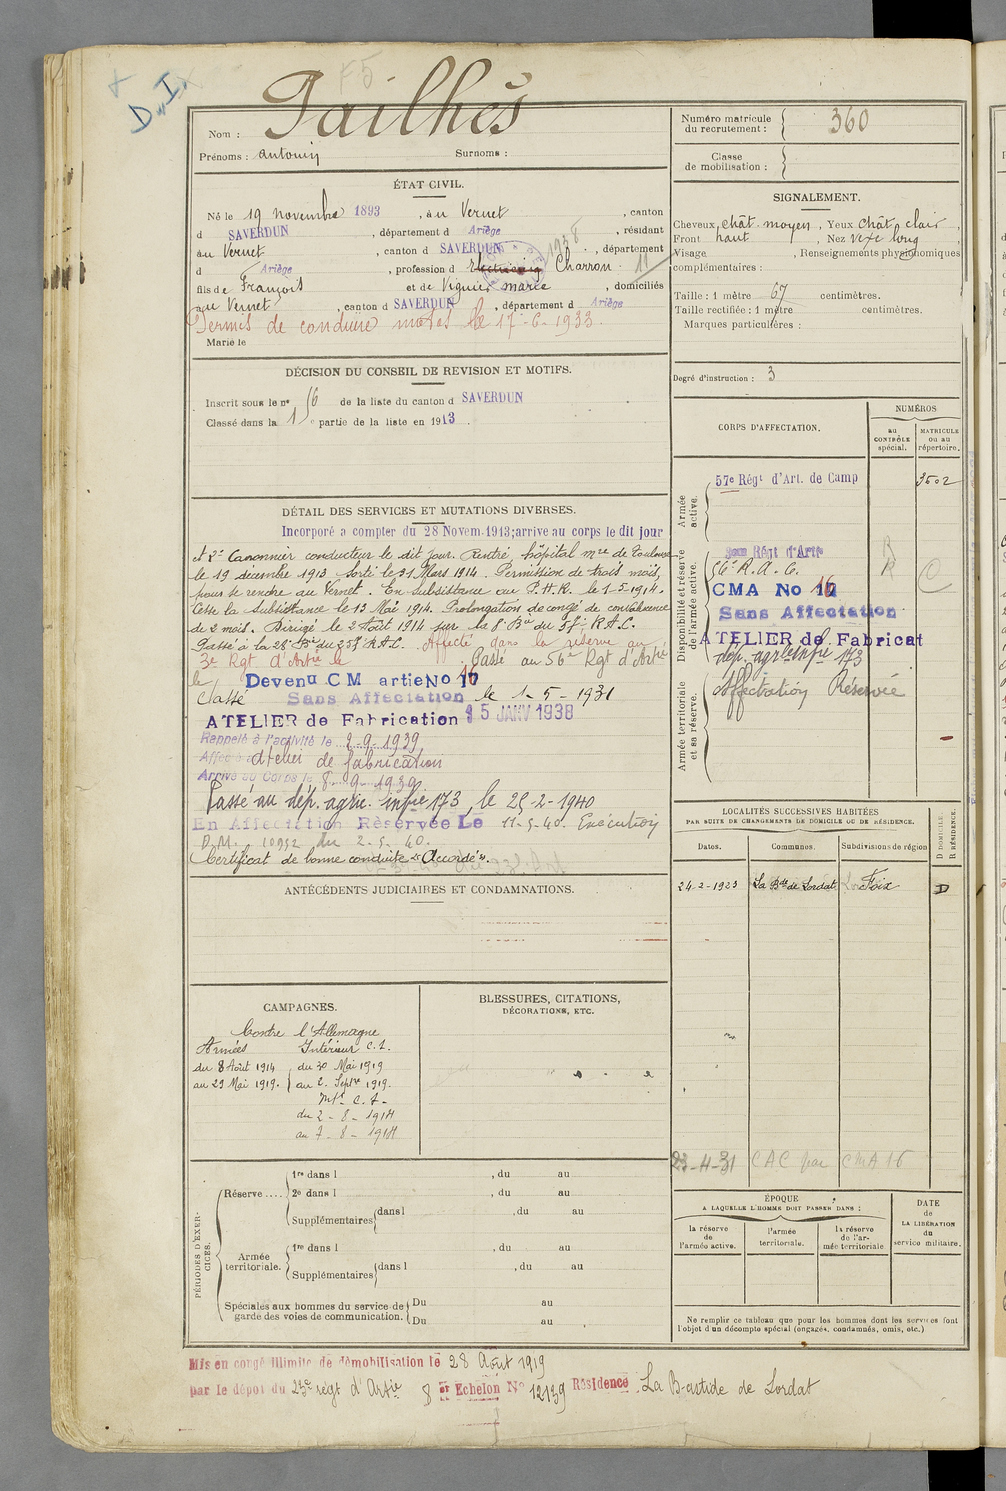 D. IX
F5
Nom : Pailhès
Prénoms : Antonin Surnoms :
Numéro matricule du recrutement : 360
Classe de mobilisation :
ÉTAT CIVIL.
Né le 19 novembre 1893, à u Vernet, canton
d SAVERDUN, département d Ariège, résidant
au Vernet, canton d SAVERDUN, département
d Ariège, profession d Electricien Charron
1938
fils de François et de Viguier marie, domiciliés
au Vernet, canton d SAVERDUN, département d Ariège
Permis de conduire motos le 17-6-1933.
Marié le
SIGNALEMENT.
Cheveux chât. moyen, Yeux chât. clair,
Front haut, Nez vexe long
Visage, Renseignements physionomiques
complémentaires :
Taille : 1 mètre 67 centimètres.
Taille rectifiée : 1 mètre centimètres.
Marques particulières :
Degré d'instruction : 3
DÉCISION DU CONSEIL DE REVISION ET MOTIFS.
Inscrit sous le n° 56 de la liste du canton d SAVERDUN
Classé dans la 1e partie de la liste en 1913
CORPS D'AFFECTATION.
NUMÉROS
au CONTRÔLE spécial.
MATRICULE ou au répertoire.
Armée active.
57e Régt d'Art. de Camp 3502
Disponibilité et réserve de l'armée active.
Régt d'Artie
56e R.A.C.
CMA No 16
Sans Affectation
ATELIER de Fabricat
dép. agrle infie 173
Armée territoriale et sa réserve.
Affectation Réservée
DÉTAIL DES SERVICES ET MUTATIONS DIVERSES.
Incorporé a compter du 28 Novem. 1913; arrive au corps le dit jour
et 2e Canonnier conducteur le dit jour. Rentré hôpital mre de Toulouse
le 19 décembre 1913 Sorti le 31 Mars 1914. Permission de trois mois,
pour se rendre au Vernet. En Subsistance au P.H.R. le 1-5-1914.
Cesse la Subsistance le 13 Mai 1914. Prolongation de congé de convalescence
de 2 mois. Dirigé le 2 Août 1914 sur la 8e Bie du 57e R.A.C.
Passé à la 28e Bie du 23e R.A.C. Affecté dans la réserve au
3e Rgt. d'Artie le Passé au 56e Rgt d'Artie
le Devenu CM artie No 16
Classé Sans Affectation le 1-5-1931
ATELIER de Fabrication 15 JANV 1938
Rappelé à l'activité le 2.9.1939
Affecté atelier de fabrication
Arrivé au Corps le 8.9.1939
Passé au dép. agric. infie 173, le 25-2-1940
En Affectation Réservée Le 11-5-40. Exécution
D.M. 10952 du 2-5-40.
Certificat de bonne conduite "Accordé".
LOCALITÉS SUCCESSIVES HABITÉES
PAR SUITE DE CHANGEMENTS DE DOMICILE OU DE RÉSIDENCE.
Dates. Communes. Subdivisions de région
D DOMICILE. R RÉSIDENCE.
24-2-1923 La Bde de Lordat Foix D
23-4-31 CAC par CMA 16
ANTÉCÉDENTS JUDICIAIRES ET CONDAMNATIONS.
CAMPAGNES.
Contre l'Allemagne
Armées Intérieur C.S.
du 8 Août 1914 du 30 Mai 1919
au 29 Mai 1919. au 2. Septre 1919.
Int. C.S.
du 2-8-1914
au 7-8-1914
BLESSURES, CITATIONS,
DÉCORATIONS, ETC.
PÉRIODES D'EXERCICES.
Réserve ....
1re dans l, du au
2e dans l, du au
Supplémentaires dans l, du au
Armée territoriale.
1re dans l, du au
Supplémentaires dans l, du au
Spéciales aux hommes du service de garde des voies de communication.
Du au
Du au
ÉPOQUE
A LAQUELLE L'HOMME DOIT PASSER DANS :
la réserve de l'armée active.
l'armée territoriale.
la réserve de l'armée territoriale
DATE de LA LIBÉRATION du service militaire.
Ne remplir ce tableau que pour les hommes dont les services font
l'objet d'un décompte spécial (engagés, condamnés, omis, etc.)
Mis en congé illimité de démobilisation le 28 Août 1919
par le dépôt du 23e régt d'Artie 8 er Echelon No 12139 Résidence La Bastide de Lordat